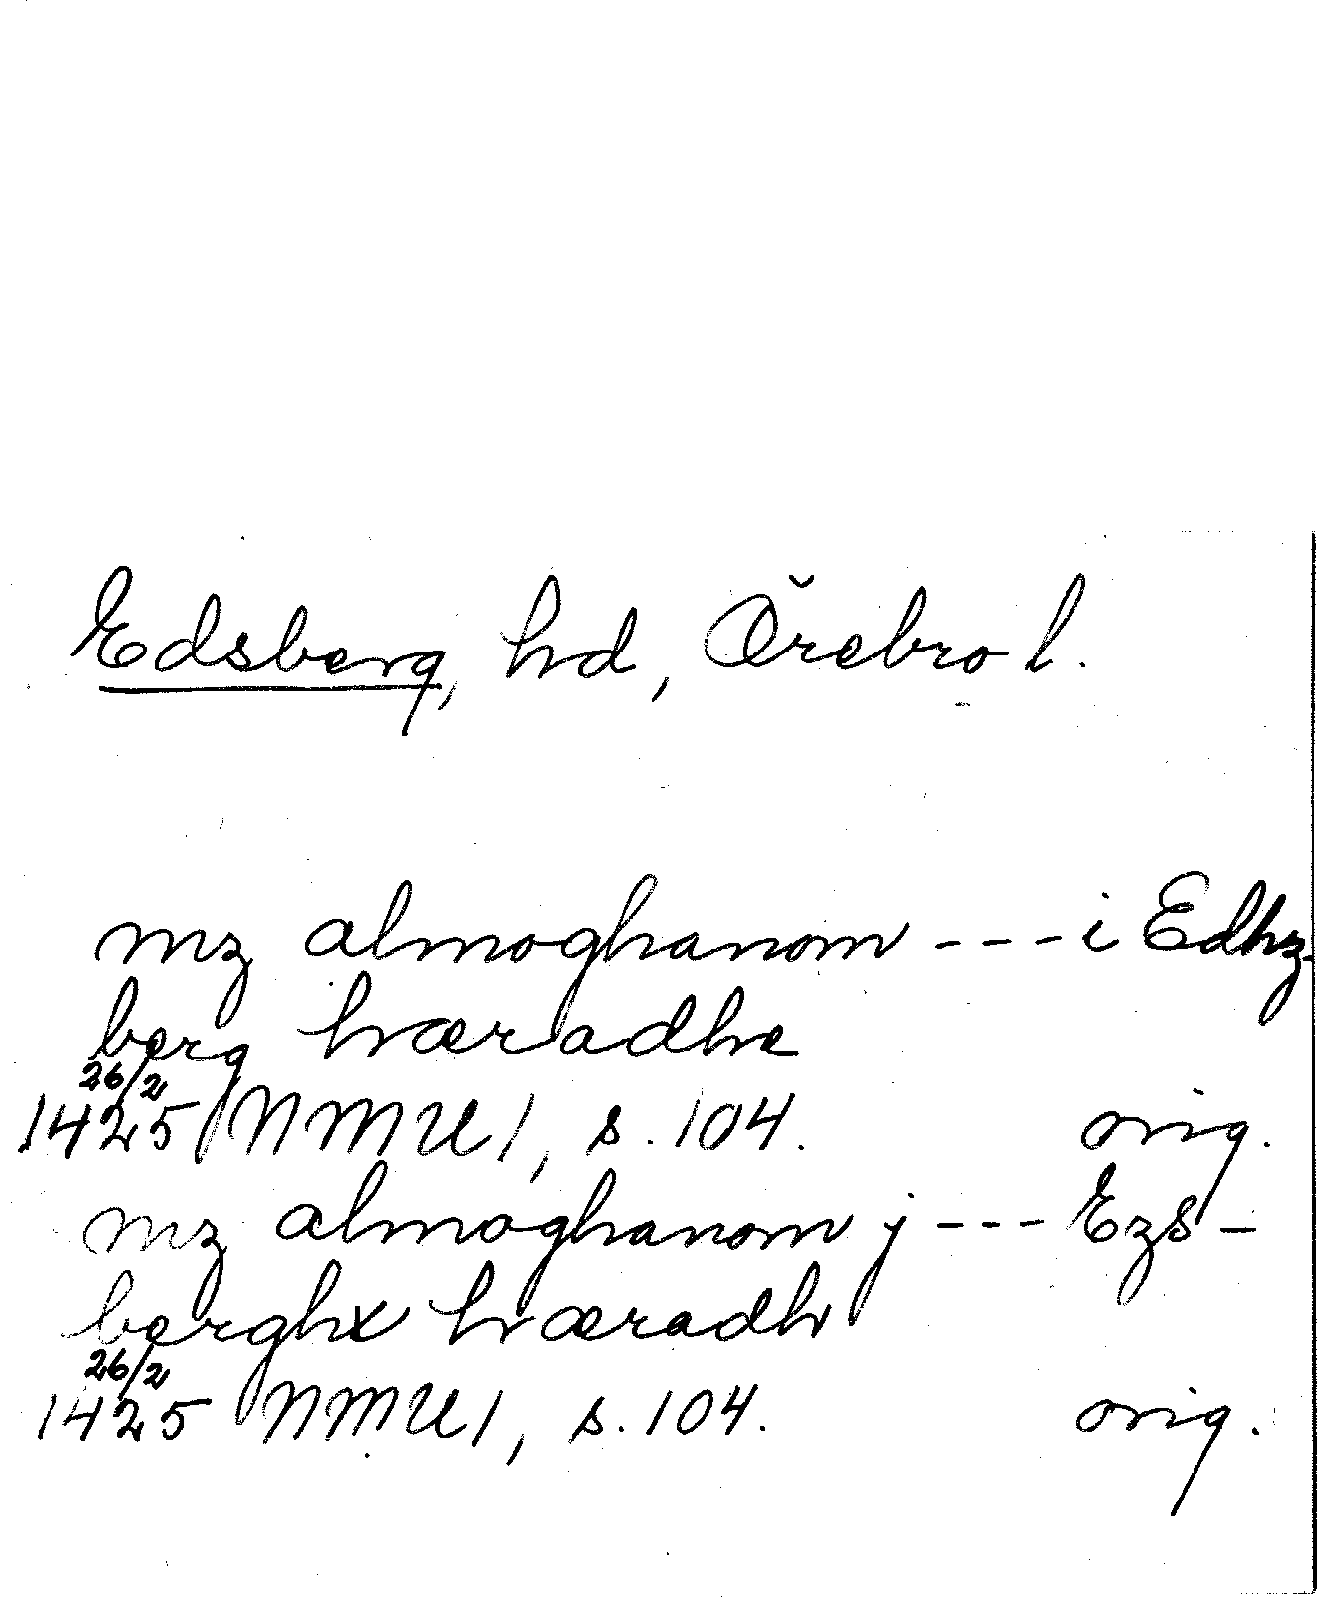 Edsberg, hd, Örebro l.
mz almoghanom --- i Edhz-
berg hæradhe
26/2
1425 NMU 1, s. 104. orig.
mz almoghanom j --- Ezs-
berghx hæradh
26/2
1425 NMU 1, s. 104. orig.